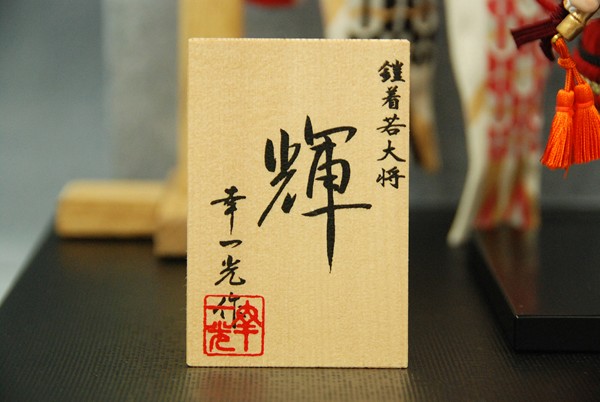 鎧着若大将
輝
幸一光作
幸一光